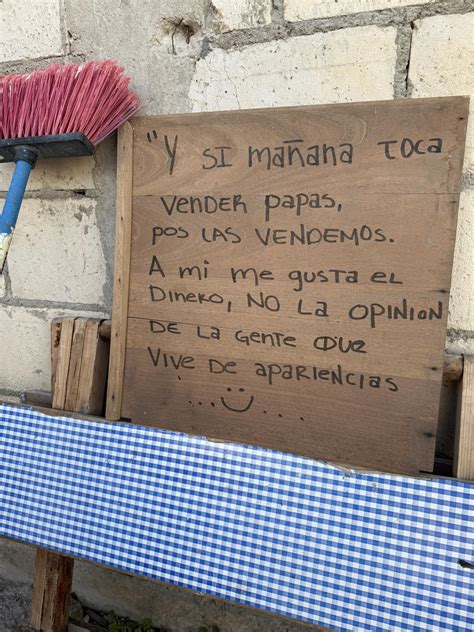 "Y SI mañana TOCA
VENDER papas,
pos LAS VENDEMOS.
A mi me gusta EL
DINERO, NO LA OPINION
DE LA GENTE QUE
VIVE DE apariencias
...☺....